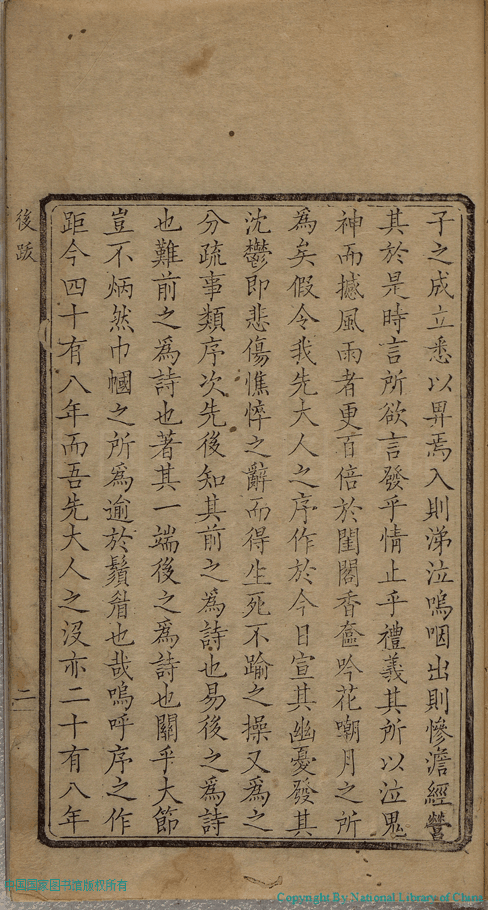 子之成立悉以畀焉入則涕泣嗚咽出則慘澹經營
其於是時言所欲言發乎情止乎禮義其所以泣鬼
神而撼風雨者更百倍於閨閣香奩吟花嘲月之所
為矣假令我先大人之序作於今日宣其幽憂發其
沈鬱即悲傷憔悴之辭而得生死不踰之操又為之
分疏事類序次先後知其前之為詩也易後之為詩
也難前之為詩也著其一端後之為詩也關乎大節
豈不炳然巾幗之所為逾於鬚眉也哉嗚呼序之作
距今四十有八年而吾先大人之沒亦二十有八年
後跋
二
中国国家图书馆版权所有
Copyright By National Library of China